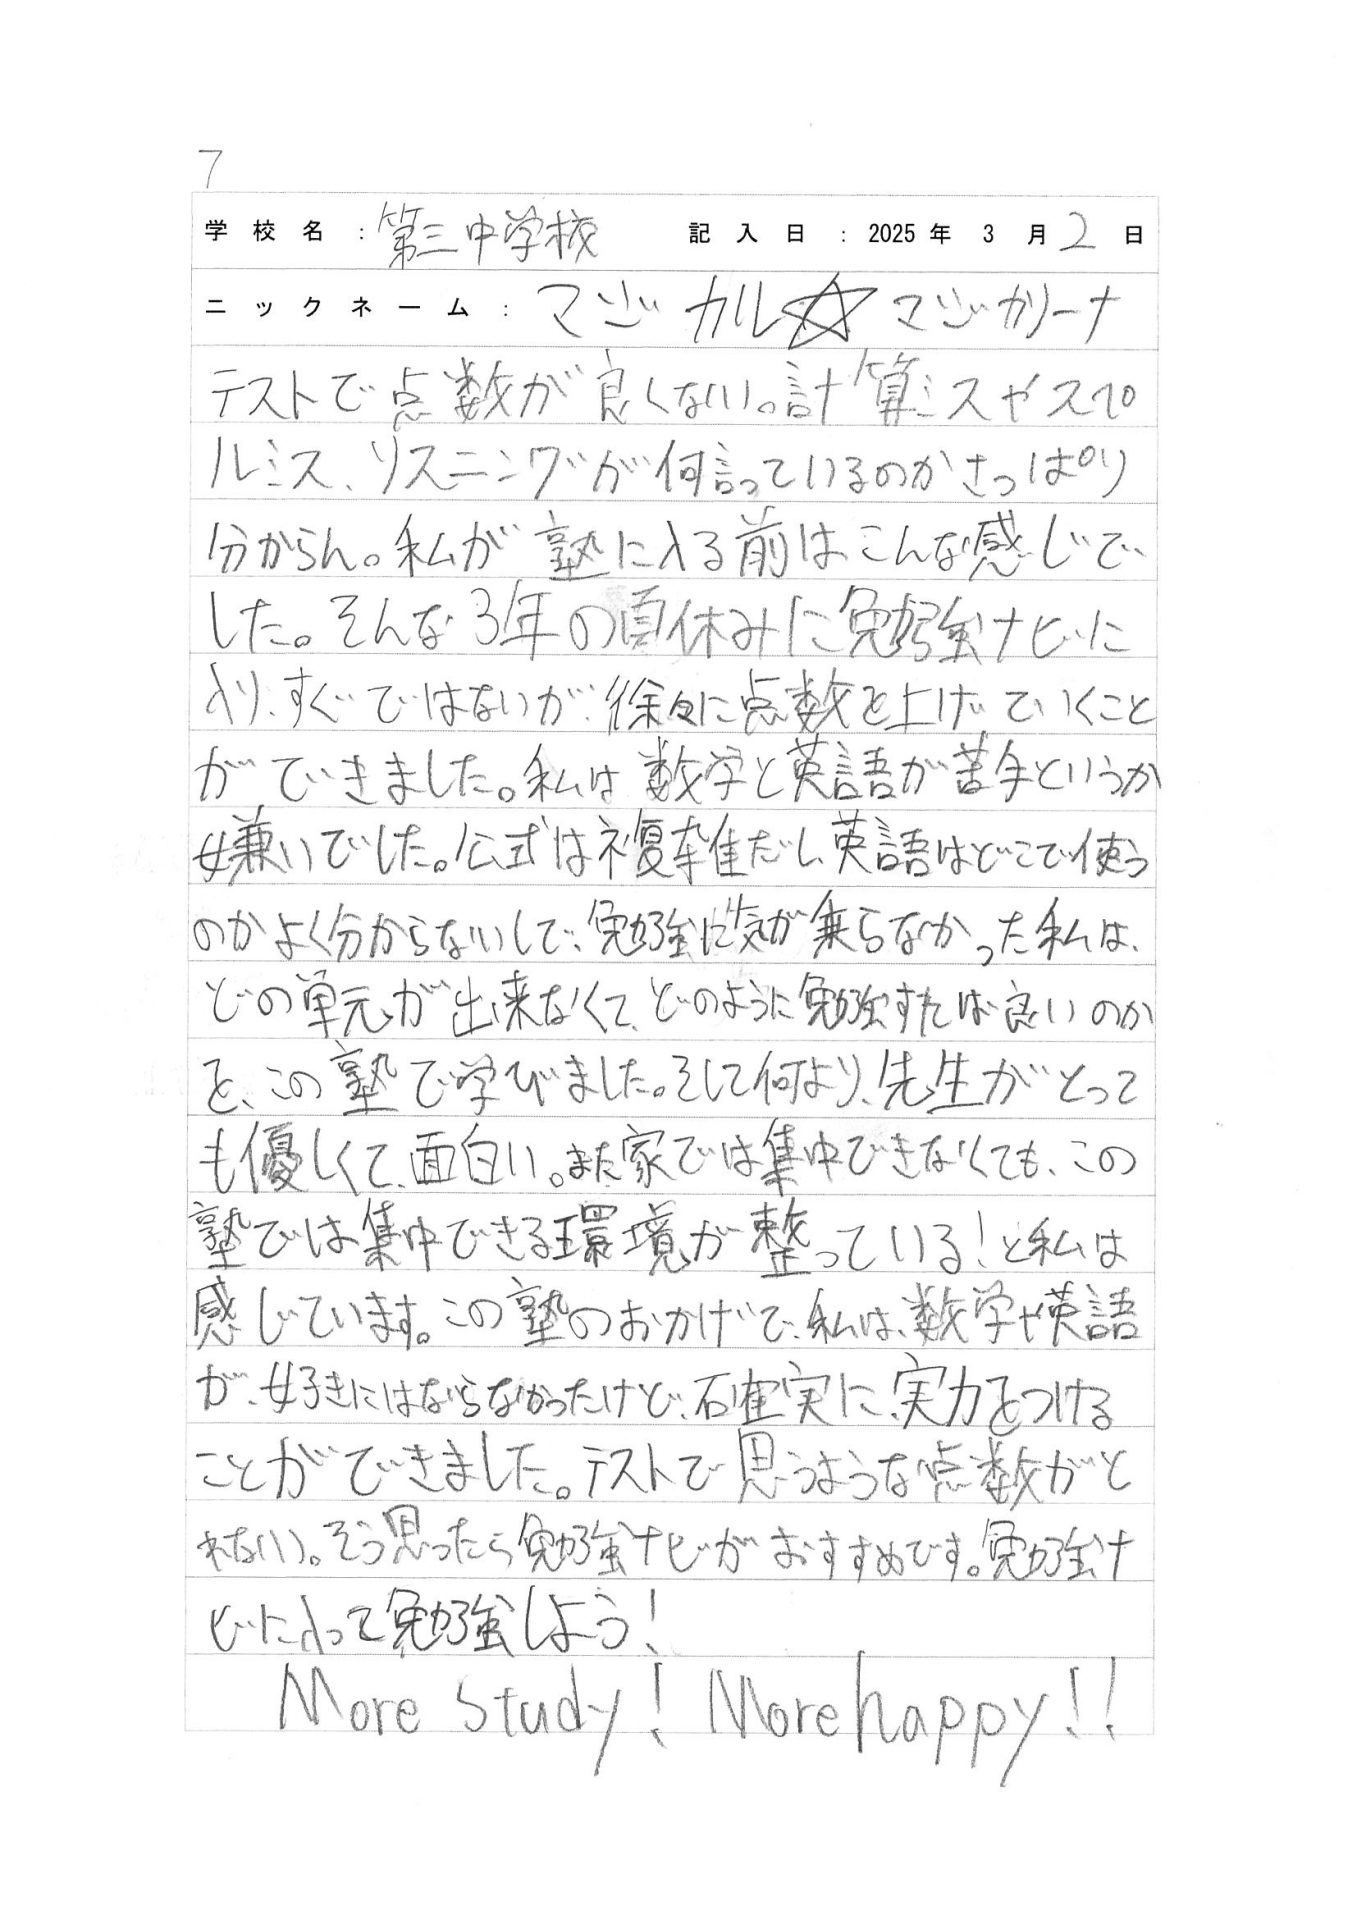 7
学校名：第三中学校 記入日：2025年3月2日
ニックネーム：マジカル☆マジカリーナ
テストで点数が良くない。計算ミスやスペ
ルミス、リスニングが何言っているのかさっぱり
分からん。私が塾に入る前はこんな感じで
した。そんな3年の夏休みに勉強ナビに
入り、すぐではないが、徐々に点数を上げていくこと
ができました。私は数学と英語が苦手というか
嫌いでした。公式は複雑だし、英語はどこで使う
のかよく分からないしで、勉強に気が乗らなかった私は、
どの単元が出来なくて、どのように勉強すれば良いのか
を、この塾で学びました。そして何より、先生がとって
も優しくて、面白い。また家では集中できなくても、この
塾では集中できる環境が整っている！と私は
感じています。この塾のおかげで、私は、数学や英語
が、好きにはならなかったけど、確実に、実力をつける
ことができました。テストで思うような点数がと
れない。そう思ったら勉強ナビがおすすめです。勉強ナ
ビに入って勉強しよう！
More Study! More happy!!